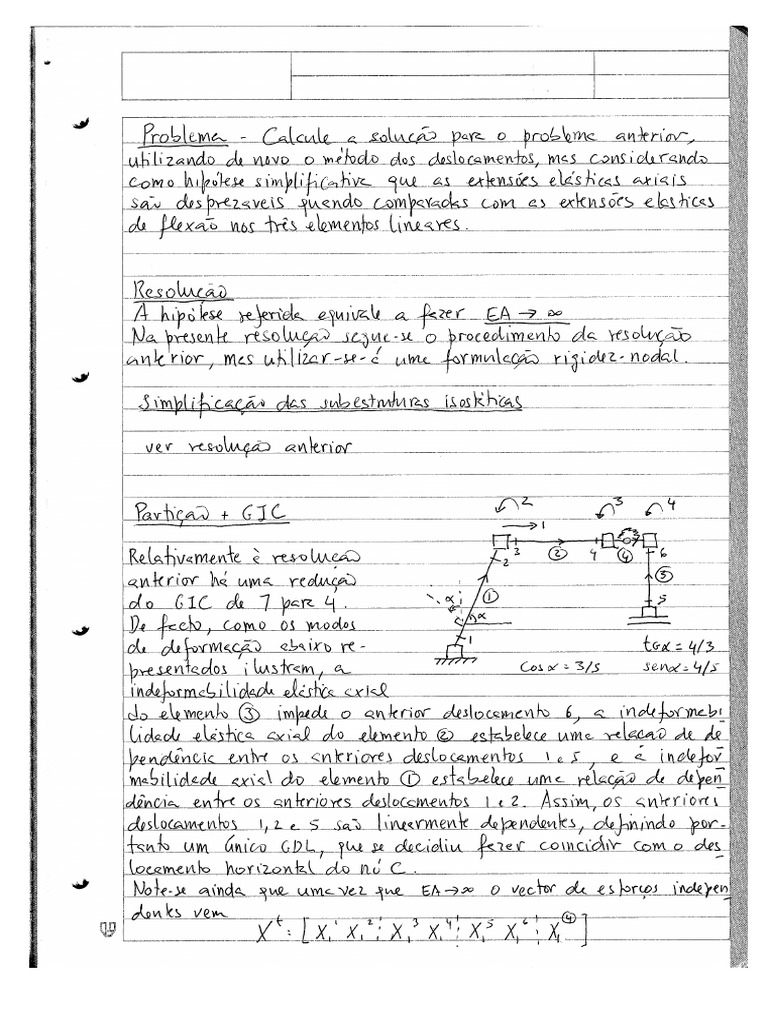 Problema - Calcule a solução para o problema anterior,
utilizando de novo o método dos deslocamentos, mas considerando
como hipótese simplificativa que as extensões elásticas axiais
são desprezaveis quando comparadas com as extensões elasticas
de flexão nos três elementos lineares.
Resolução
A hipótese referida equivale a fazer EA → ∞
Na presente resolução segue-se o procedimento da resolução
anterior, mas utilizar-se-á uma formulação rigidez-nodal.
Simplificação das subestruturas isostáticas
ver resolução anterior
Partição + GIC
Relativamente à resolução
anterior há uma redução
do GIC de 7 para 4.
De facto, como os modos
de deformação abaixo re-
presentados ilustram, a
indeformabilidade elástica axial
2 3 4
1
3 ② 4 ④ 6
2
① ③
α α 5
1
tgα = 4/3
cosα = 3/5 senα = 4/5
do elemento ③ impede o anterior deslocamento 6, a indeformabi-
lidade elástica axial do elemento ② estabelece uma relação de de
pendência entre os anteriores deslocamentos 1 e 5, e a indefor
mabilidade axial do elemento ① estabelece uma relação de depen
dência entre os anteriores deslocamentos 1 e 2. Assim, os anteriores
deslocamentos 1, 2 e 5 são linearmente dependentes, definindo por-
tanto um único GDL, que se decidiu fazer coincidir com o des
locamento horizontal do nó C.
Note-se ainda que uma vez que EA→∞ o vector de esforços indepen
dentes vem